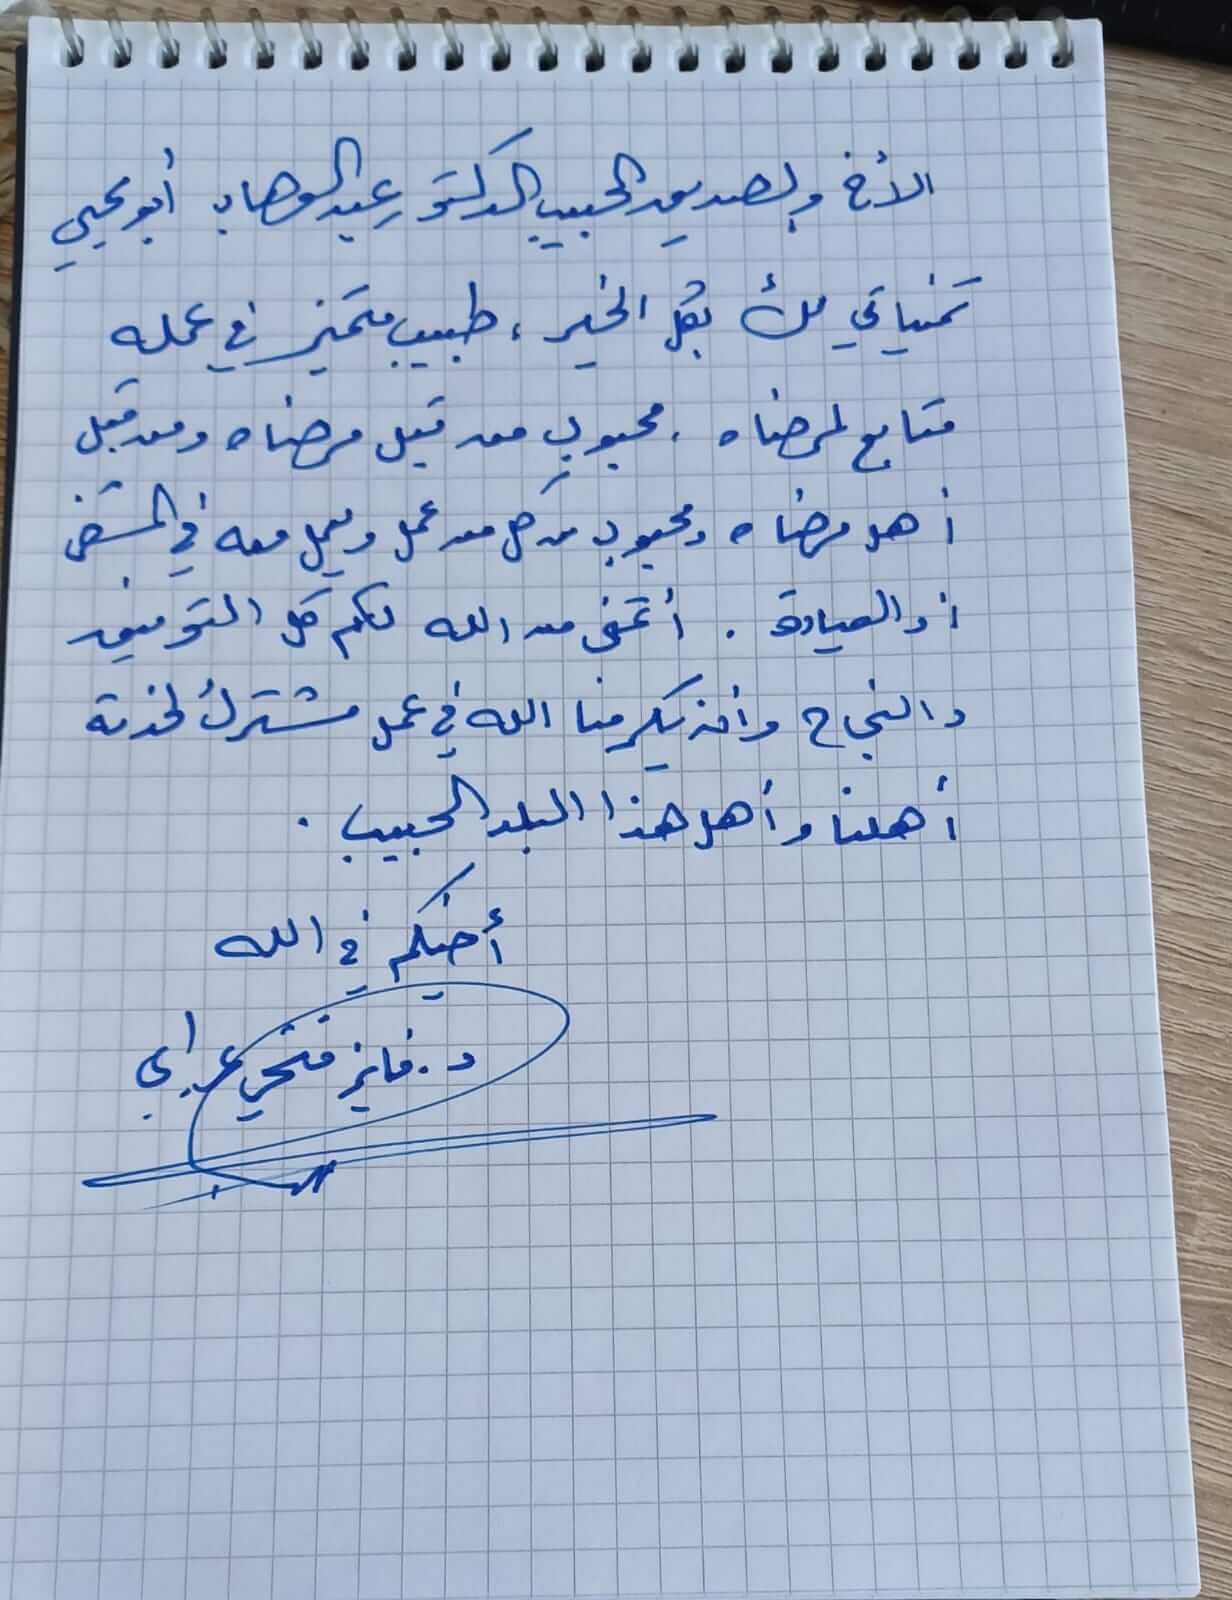 الأخ والصديق الحبيب الدكتور عبد الوهاب أبو يحيى
تمنياتي لك بكل الخير ، طبيب متميز في عمله
متابع لمرضاه ، محبوب من قبل مرضاه ومن قبل
أهل مرضاه ومحبوب من كل من عمل ويعمل معه في المستشفى
أو العيادة . أتمنى من الله لكم كل التوفيق
والنجاح وأن يكرمنا الله في عمل مشترك لخدمة
أهلنا وأهل هذا البلد الحبيب .
أخيكم في الله
د. فايز فتحي عرابي